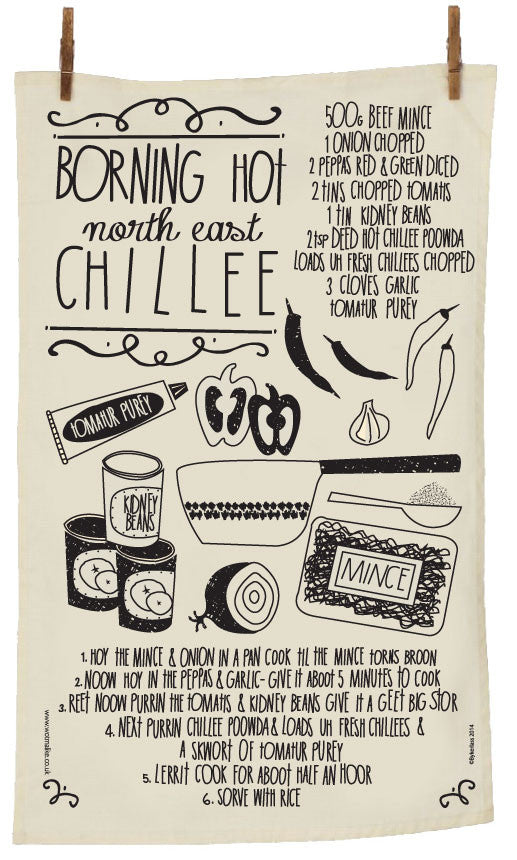 BORNING HOT
north east
CHILLEE
500G BEEF MINCE
1 ONION CHOPPED
2 PEPPAS RED & GREEN DICED
2 TINS CHOPPED TOMATIS
1 TIN KIDNEY BEANS
2tsp DEED HOT CHILLEE POOWDA
LOADS UH FRESH CHILLEES CHOPPED
3 CLOVES GARLIC
TOMATUR PUREY
TOMATUR PUREY
KIDNEY
BEANS
MINCE
1. HOY THE MINCE & ONION IN A PAN COOK TIL THE MINCE TORNS BROON
2. NOOW HOY IN THE PEPPAS & GARLIC- GIVE IT ABOOT 5 MINUTES TO COOK
3. REET NOOW PURRIN THE TOMATIS & KIDNEY BEANS GIVE IT A GEET BIG STOR
4. NEXT PURRIN CHILLEE POOWDA & LOADS UH FRESH CHILLEES &
A SKWORT OF TOMATUR PUREY
5. LERRIT COOK FOR ABOOT HALF AN HOOR
6. SORVE WITH RICE
www.wotmalike.co.uk
©Bykerlass 2014